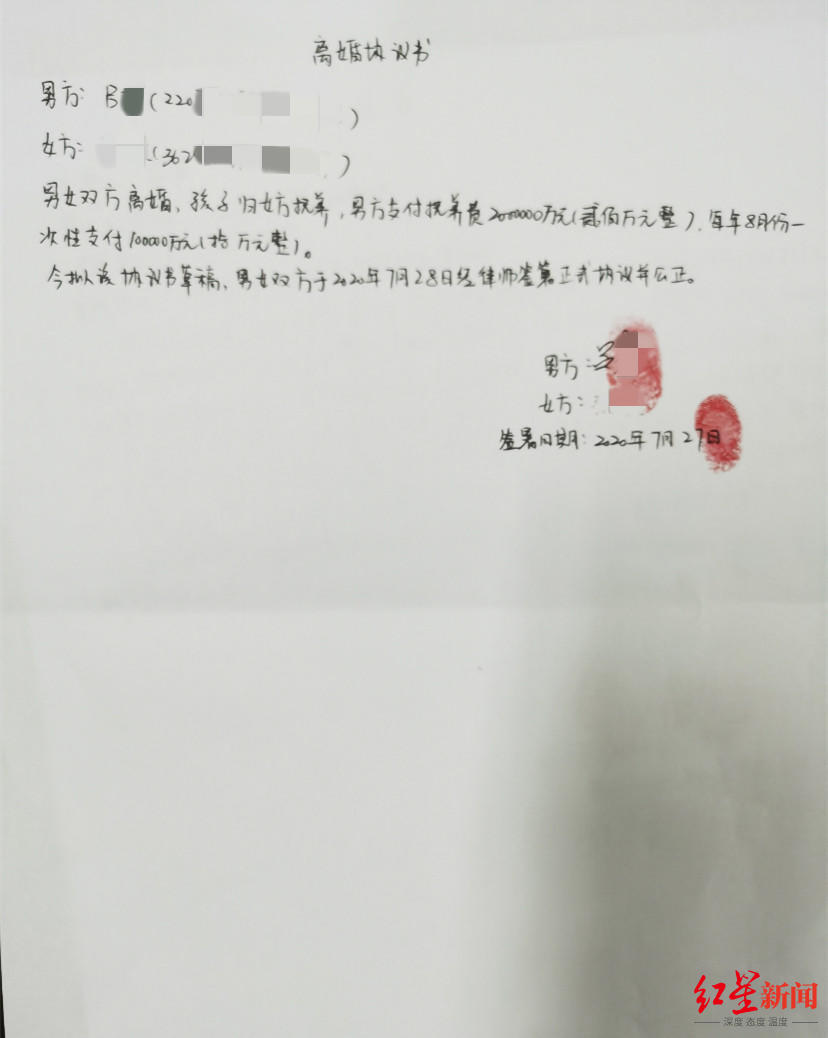 离婚协议书
男方: (220 )
女方: (362 )
男女双方离婚、孩子归女方抚养,男方支付抚养费2000000万元(贰佰万元整)。每年8月份一
次性支付100000万元(拾万元整)。
今拟该协议书草稿,男女双方于2020年7月28日经律师签署正式协议并公正。
男方:
女方:
签署日期:2020年7月27日
红星新闻
深度 态度 温度